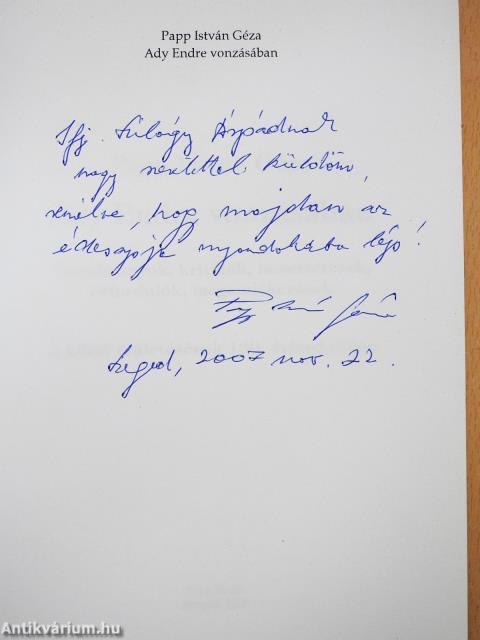 Papp István Géza
Ady Endre vonzásában
Ifj. Fülöp Árpádnak
nagy szeretettel küldöm,
remélve, hogy majdan az
édesapja nyomdokába lép!
Papp István Géza
Szeged, 2007 nov. 22.
Antikvárium.hu